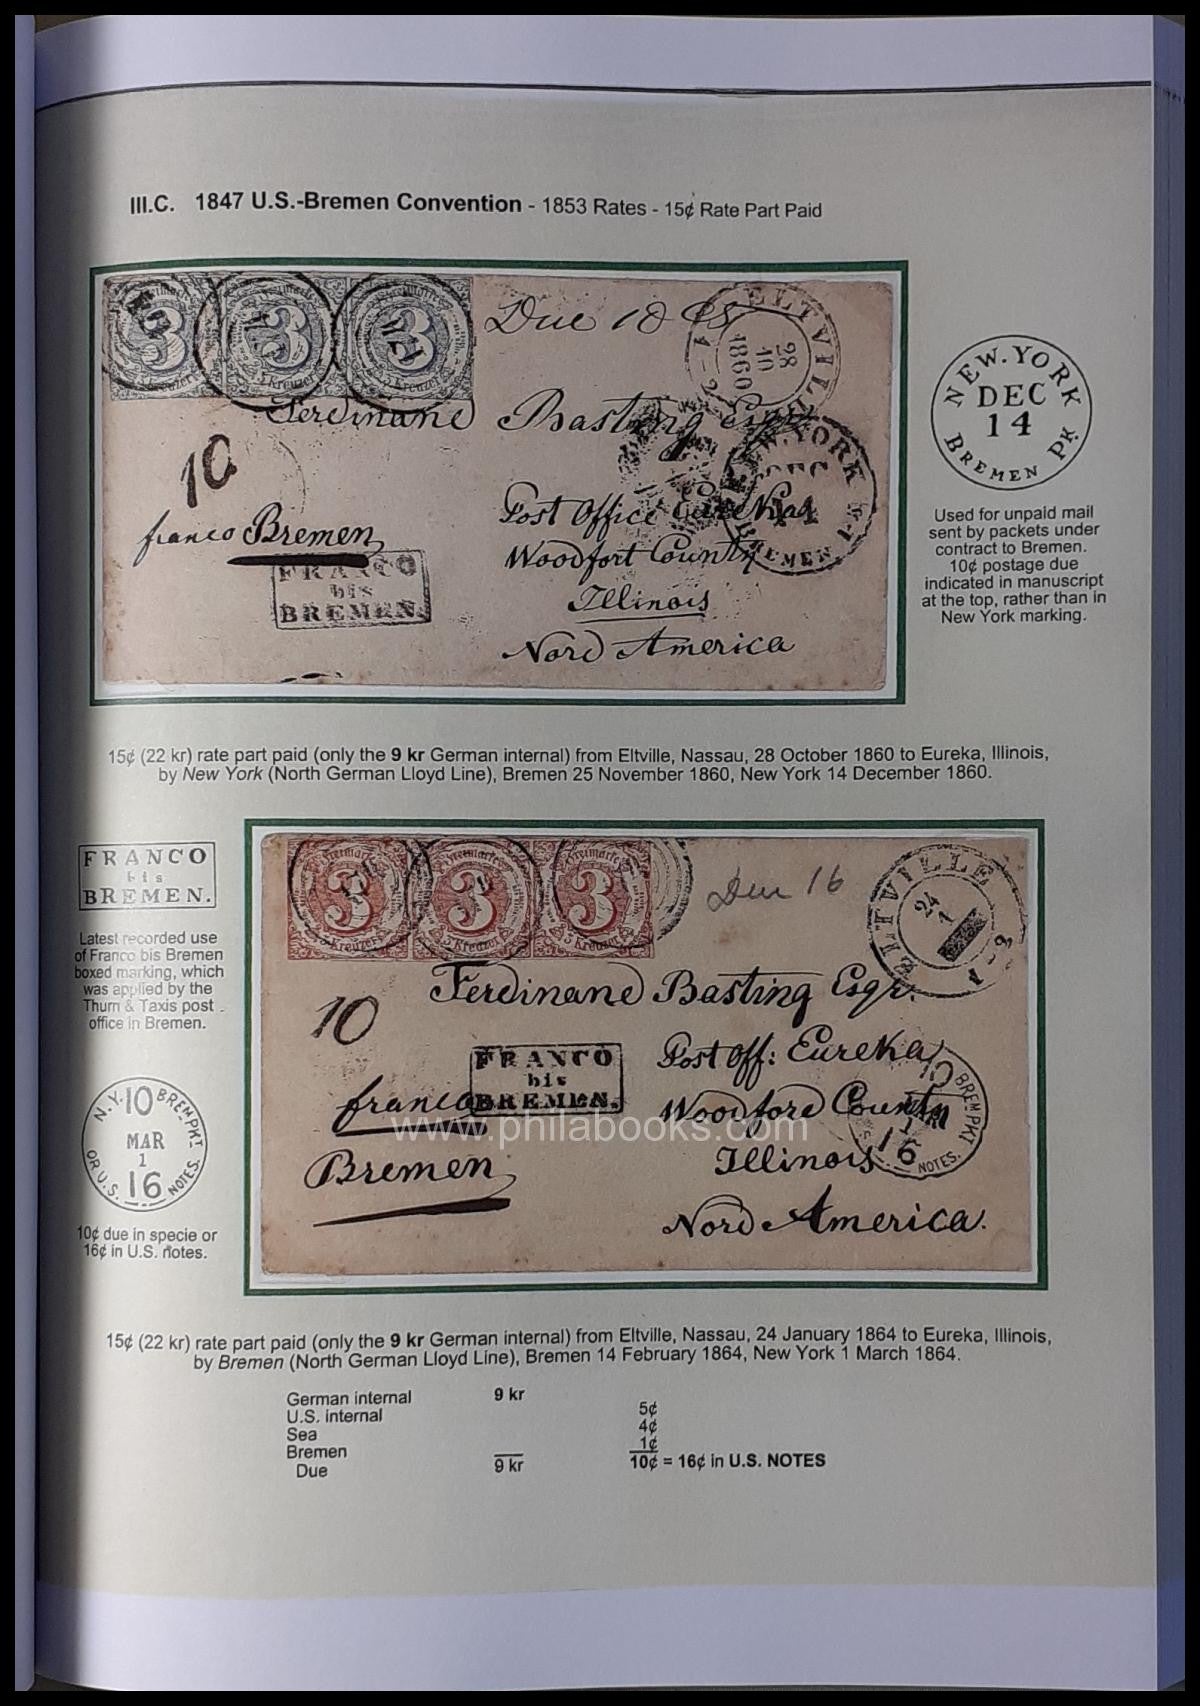 III.C. 1847 U.S.-Bremen Convention - 1853 Rates - 15¢ Rate Part Paid
Freimarke
3
3 Kreuzer
Freimarke
3
3 Kreuzer
Freimarke
3
3 Kreuzer
Due 10 cs
ELTVILLE
28
10
1860
Ferdinand Basting Esqr
10
Post Office Eureka
franco Bremen
Woodfort County
FRANCO
bis
BREMEN.
Illinois
Nord America
NEW.YORK
DEC
14
BREMEN PK.
NEW.YORK
DEC
14
BREMEN PK.
Used for unpaid mail
sent by packets under
contract to Bremen.
10¢ postage due
indicated in manuscript
at the top, rather than in
New York marking.
15¢ (22 kr) rate part paid (only the 9 kr German internal) from Eltville, Nassau, 28 October 1860 to Eureka, Illinois,
by New York (North German Lloyd Line), Bremen 25 November 1860, New York 14 December 1860.
FRANCO
bis
BREMEN.
Latest recorded use
of Franco bis Bremen
boxed marking, which
was applied by the
Thurn & Taxis post
office in Bremen.
N.Y. 10 BREM. PKT.
MAR
1
16
OR U.S. NOTES.
10¢ due in specie or
16¢ in U.S. notes.
Freimarke
3
3 Kreuzer
Freimarke
3
3 Kreuzer
Freimarke
3
3 Kreuzer
Due 16
ELTVILLE
24
1
Ferdinand Basting Esqr.
10
Post Off: Eureka
FRANCO
bis
BREMEN.
franco
Woodford County
Bremen
Illinois
Nord America.
10 BREM. PKT
MAR
1
16
NOTES.
www.philabooks.com
15¢ (22 kr) rate part paid (only the 9 kr German internal) from Eltville, Nassau, 24 January 1864 to Eureka, Illinois,
by Bremen (North German Lloyd Line), Bremen 14 February 1864, New York 1 March 1864.
German internal 9 kr
U.S. internal 5¢
Sea 4¢
Bremen 1¢
Due 9 kr 10¢ = 16¢ in U.S. NOTES